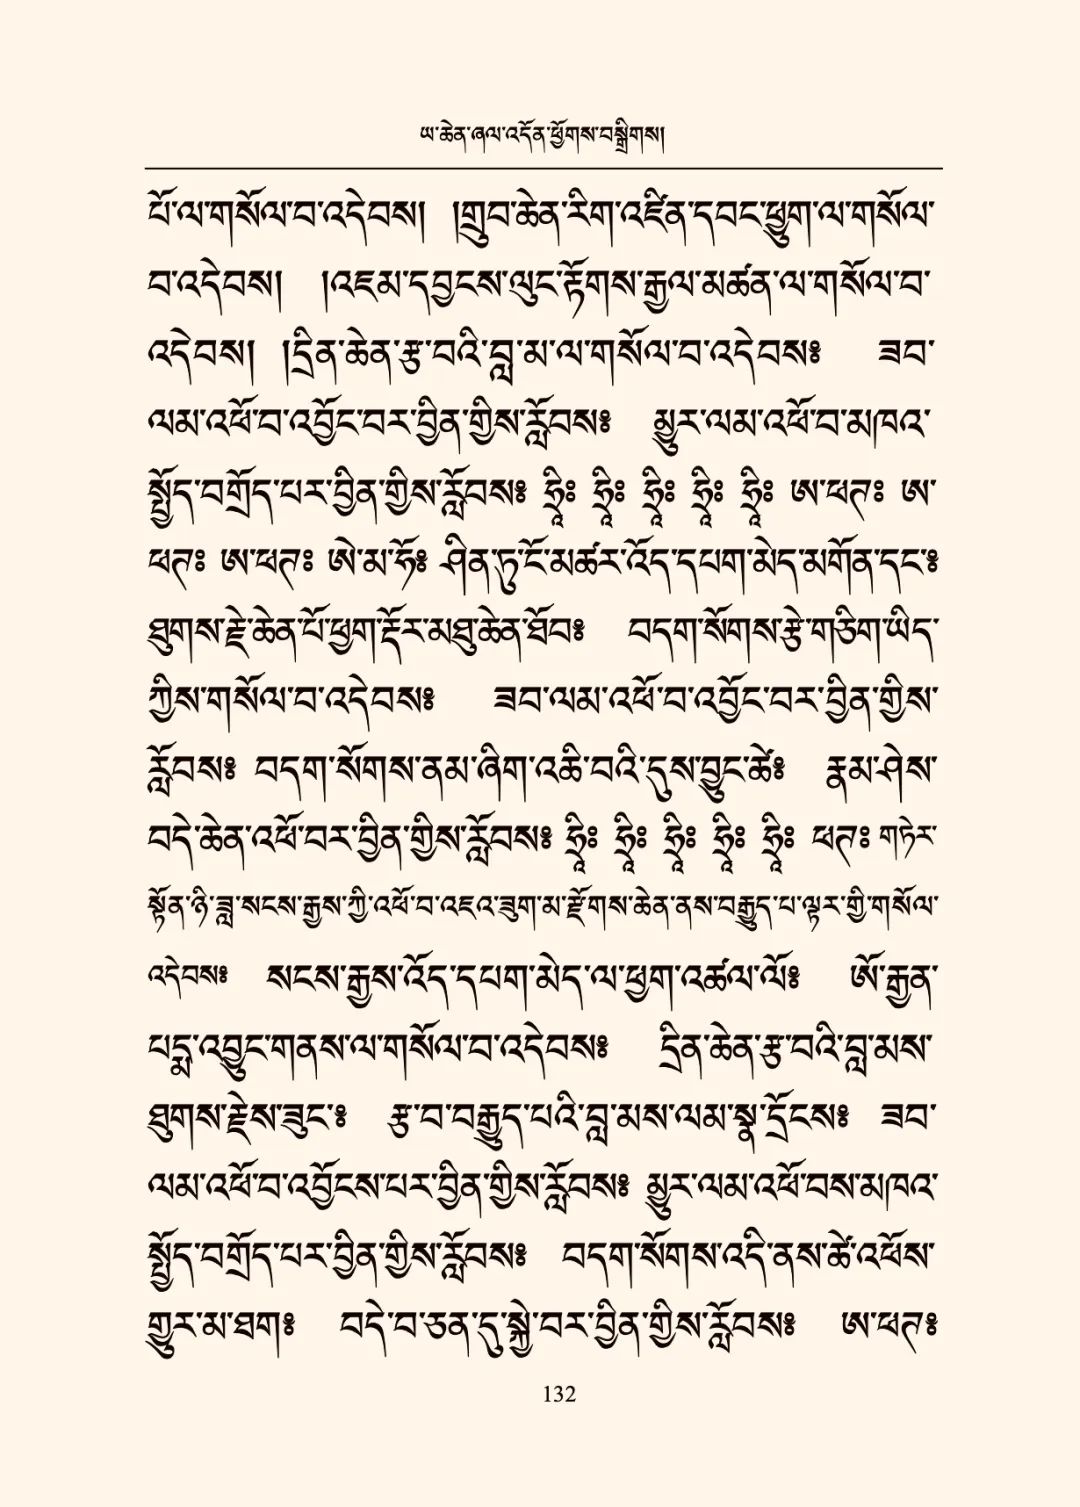 ཡ་ཆེན་ཞལ་འདོན་ཕྱོགས་བསྒྲིགས།
པོ་ལ་གསོལ་བ་འདེབས། །གྲུབ་ཆེན་རིག་འཛིན་དབང་ཕྱུག་ལ་གསོལ་
བ་འདེབས། །འཇམ་དབྱངས་ལུང་རྟོགས་རྒྱལ་མཚན་ལ་གསོལ་བ་
འདེབས། །དྲིན་ཆེན་རྩ་བའི་བླ་མ་ལ་གསོལ་བ་འདེབས༔ ཟབ་
ལམ་འཕོ་བ་འབྱོང་བར་བྱིན་གྱིས་རློབས༔ མྱུར་ལམ་འཕོ་བ་མཁའ་
སྤྱོད་བགྲོད་པར་བྱིན་གྱིས་རློབས༔ ཧྲཱིཿ ཧྲཱིཿ ཧྲཱིཿ ཧྲཱིཿ ཧྲཱིཿ ཨ་ཕཊ༔ ཨ་
ཕཊ༔ ཨ་ཕཊ༔ ཨེ་མ་ཧོ༔ ཤིན་ཏུ་ངོ་མཚར་འོད་དཔག་མེད་མགོན་དང་༔
ཐུགས་རྗེ་ཆེན་པོ་ཕྱག་རྡོར་མཐུ་ཆེན་ཐོབ༔ བདག་སོགས་རྩེ་གཅིག་ཡིད་
ཀྱིས་གསོལ་བ་འདེབས༔ ཟབ་ལམ་འཕོ་བ་འབྱོང་བར་བྱིན་གྱིས་
རློབས༔ བདག་སོགས་ནམ་ཞིག་འཆི་བའི་དུས་བྱུང་ཚེ༔ རྣམ་ཤེས་
བདེ་ཆེན་འཕོ་བར་བྱིན་གྱིས་རློབས༔ ཧྲཱིཿ ཧྲཱིཿ ཧྲཱིཿ ཧྲཱིཿ ཧྲཱིཿ ཕཊ༔ གཏེར་
སྟོན་ཉི་ཟླ་སངས་རྒྱས་ཀྱི་འཕོ་བ་འཇའ་ཟུག་མ་རྫོགས་ཆེན་ནས་བརྒྱུད་པ་ལྟར་གྱི་གསོལ་
འདེབས༔ སངས་རྒྱས་འོད་དཔག་མེད་ལ་ཕྱག་འཚལ་ལོ༔ ཨོ་རྒྱན་
པདྨ་འབྱུང་གནས་ལ་གསོལ་བ་འདེབས༔ དྲིན་ཆེན་རྩ་བའི་བླ་མས་
ཐུགས་རྗེས་ཟུང་༔ རྩ་བ་བརྒྱུད་པའི་བླ་མས་ལམ་སྣ་དྲོངས༔ ཟབ་
ལམ་འཕོ་བ་འབྱོངས་པར་བྱིན་གྱིས་རློབས༔ མྱུར་ལམ་འཕོ་བས་མཁའ་
སྤྱོད་བགྲོད་པར་བྱིན་གྱིས་རློབས༔ བདག་སོགས་འདི་ནས་ཚེ་འཕོས་
གྱུར་མ་ཐག༔ བདེ་བ་ཅན་དུ་སྐྱེ་བར་བྱིན་གྱིས་རློབས༔ ཨ་ཕཊ༔
132